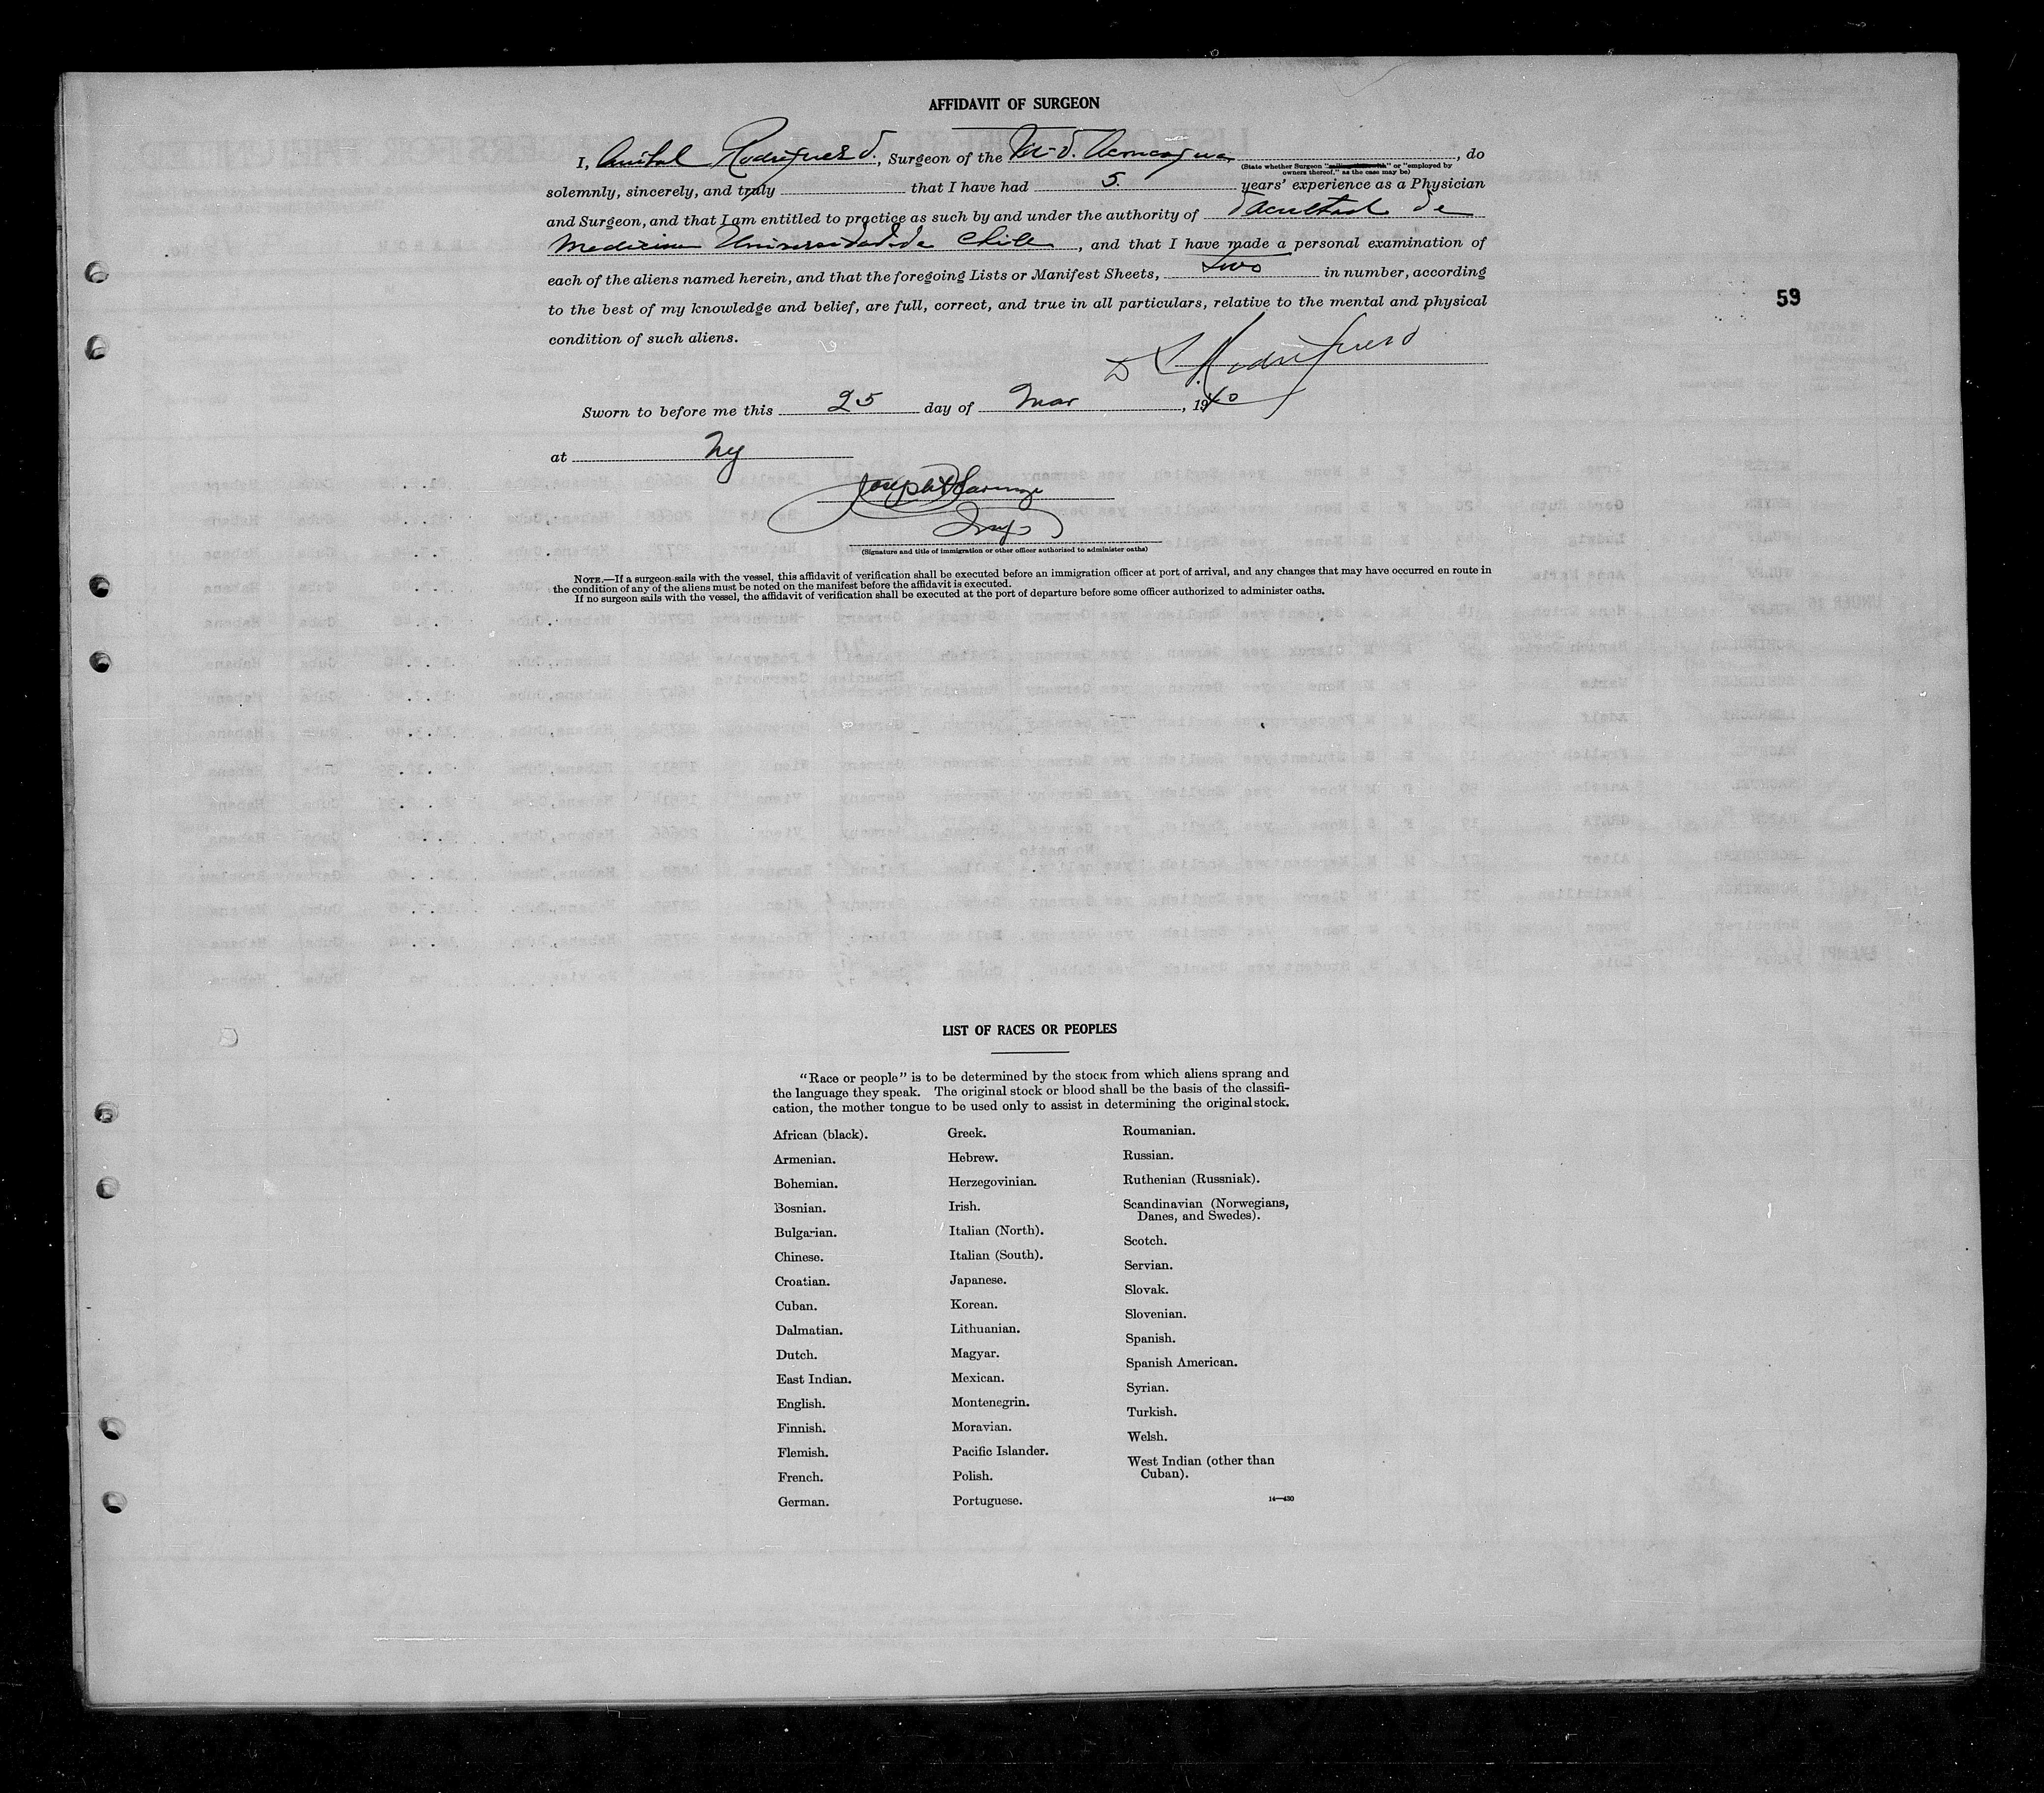 AFFIDAVIT OF SURGEON
I, Anibal Rodriguez J., Surgeon of the M. S. Aconcagua, do
(State whether Surgeon "sailing therewith" or "employed by
owners thereof," as the case may be)
solemnly, sincerely, and truly that I have had 5. years' experience as a Physician
and Surgeon, and that I am entitled to practice as such by and under the authority of Facultad de
Medicina Universidad de Chile, and that I have made a personal examination of
each of the aliens named herein, and that the foregoing Lists or Manifest Sheets, two in number, according
to the best of my knowledge and belief, are full, correct, and true in all particulars, relative to the mental and physical
condition of such aliens.
59
Rodriguez
Sworn to before me this 25 day of Mar, 1940
at NY
Joseph
Insp
(Signature and title of immigration or other officer authorized to administer oaths)
NOTE.—If a surgeon sails with the vessel, this affidavit of verification shall be executed before an immigration officer at port of arrival, and any changes that may have occurred en route in
the condition of any of the aliens must be noted on the manifest before the affidavit is executed.
If no surgeon sails with the vessel, the affidavit of verification shall be executed at the port of departure before some officer authorized to administer oaths.
LIST OF RACES OR PEOPLES
"Race or people" is to be determined by the stock from which aliens sprang and
the language they speak. The original stock or blood shall be the basis of the classifi-
cation, the mother tongue to be used only to assist in determining the original stock.
African (black).
Armenian.
Bohemian.
Bosnian.
Bulgarian.
Chinese.
Croatian.
Cuban.
Dalmatian.
Dutch.
East Indian.
English.
Finnish.
Flemish.
French.
German.
Greek.
Hebrew.
Herzegovinian.
Irish.
Italian (North).
Italian (South).
Japanese.
Korean.
Lithuanian.
Magyar.
Mexican.
Montenegrin.
Moravian.
Pacific Islander.
Polish.
Portuguese.
Roumanian.
Russian.
Ruthenian (Russniak).
Scandinavian (Norwegians,
Danes, and Swedes).
Scotch.
Servian.
Slovak.
Slovenian.
Spanish.
Spanish American.
Syrian.
Turkish.
Welsh.
West Indian (other than
Cuban).
14—430